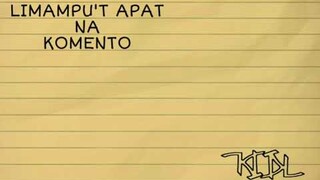 LIMAMPU'T APAT
NA
KOMENTO